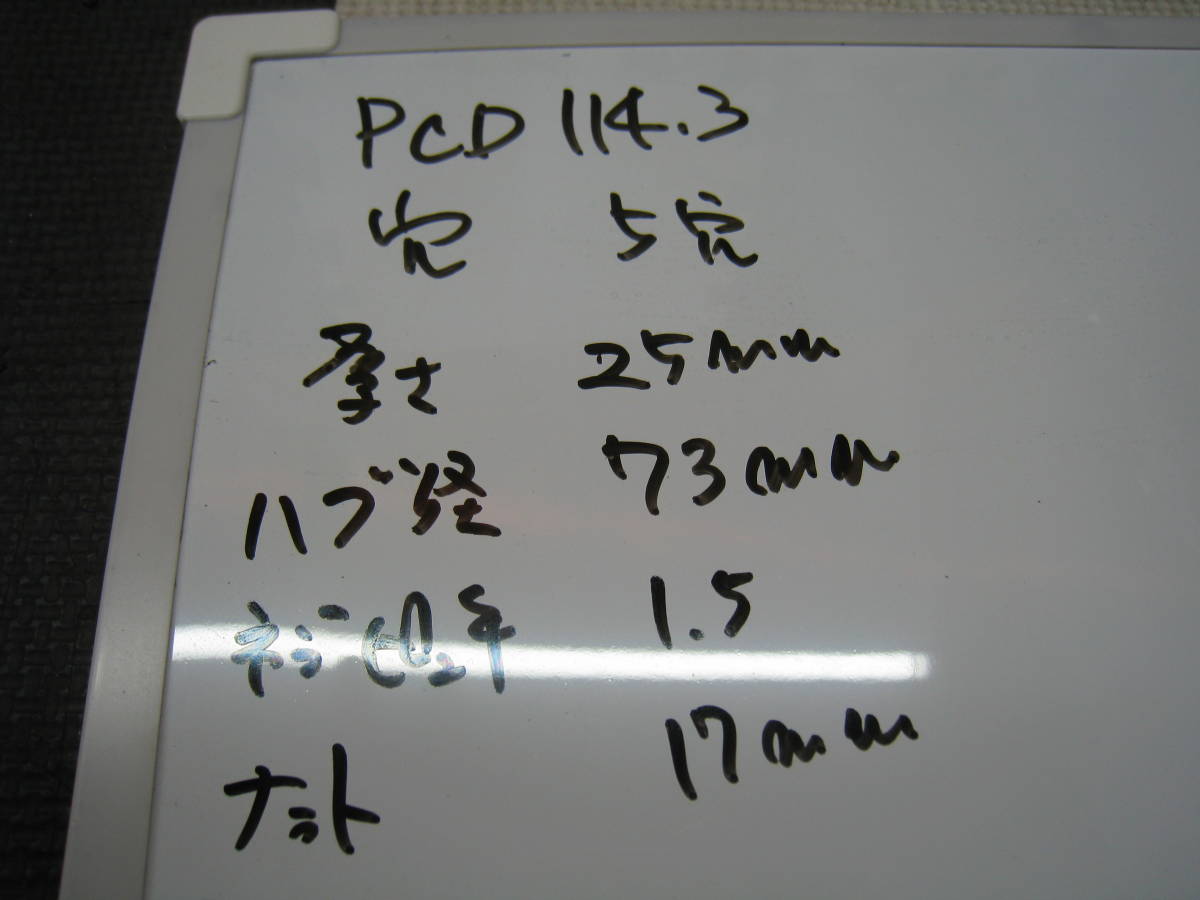 PCD 114.3
穴 5穴
厚さ 25mm
ハブ径 73mm
ネジピッチ 1.5
ナット 17mm